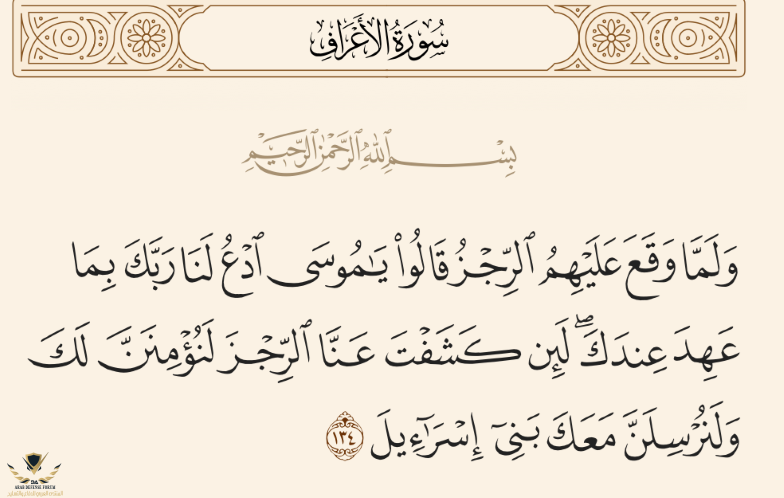 سُورَةُ الأَعْرَافِ
بِسْمِ ٱللَّهِ ٱلرَّحْمَٰنِ ٱلرَّحِيمِ
وَلَمَّا وَقَعَ عَلَيْهِمُ ٱلرِّجْزُ قَالُوا۟ يَٰمُوسَى ٱدْعُ لَنَا رَبَّكَ بِمَا
عَهِدَ عِندَكَ ۖ لَئِن كَشَفْتَ عَنَّا ٱلرِّجْزَ لَنُؤْمِنَنَّ لَكَ
وَلَنُرْسِلَنَّ مَعَكَ بَنِىٓ إِسْرَٰٓءِيلَ ١٣٤
ARAB DEFENSE FORUM